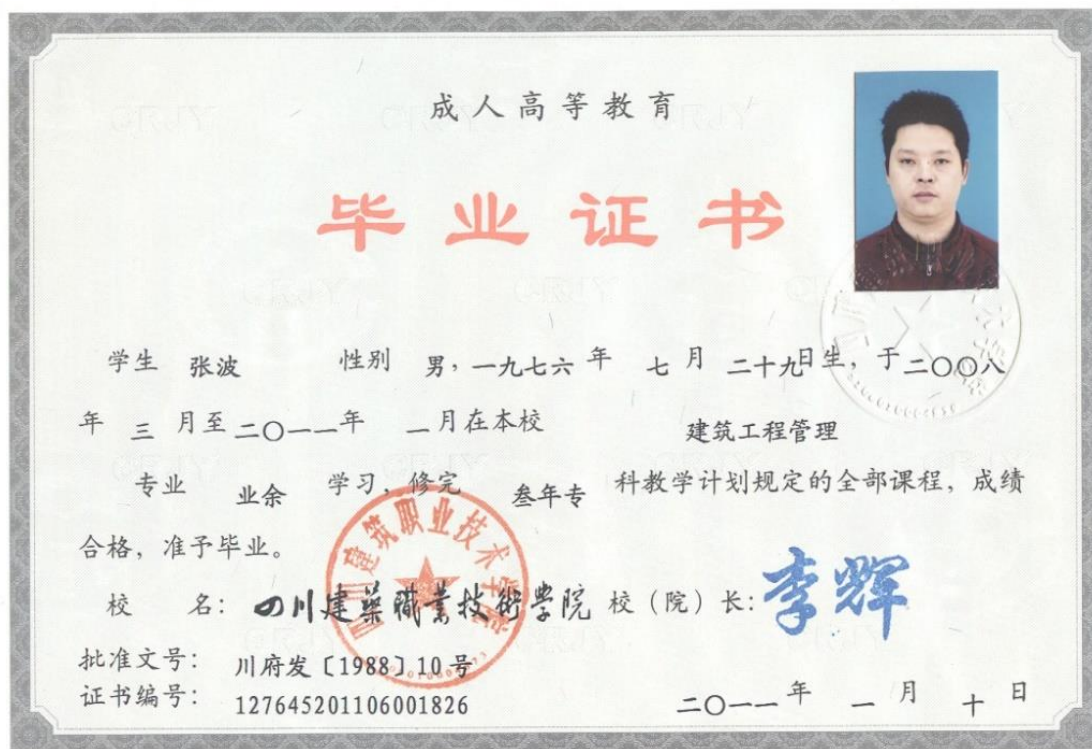 成人高等教育
毕业证书
学生 张波 性别 男，一九七六 年 七 月 二十九日生，于二〇〇八
年 三 月至二〇一一年 一月在本校 建筑工程管理
专业 业余 学习，修完 叁年专 科教学计划规定的全部课程，成绩
合格，准予毕业。
四川建筑职业技术学院
校 名：四川建築職業技術學院 校（院）长：李辉
批准文号： 川府发〔1988〕10号
证书编号： 127645201106001826
二〇一一 年 一 月 十 日